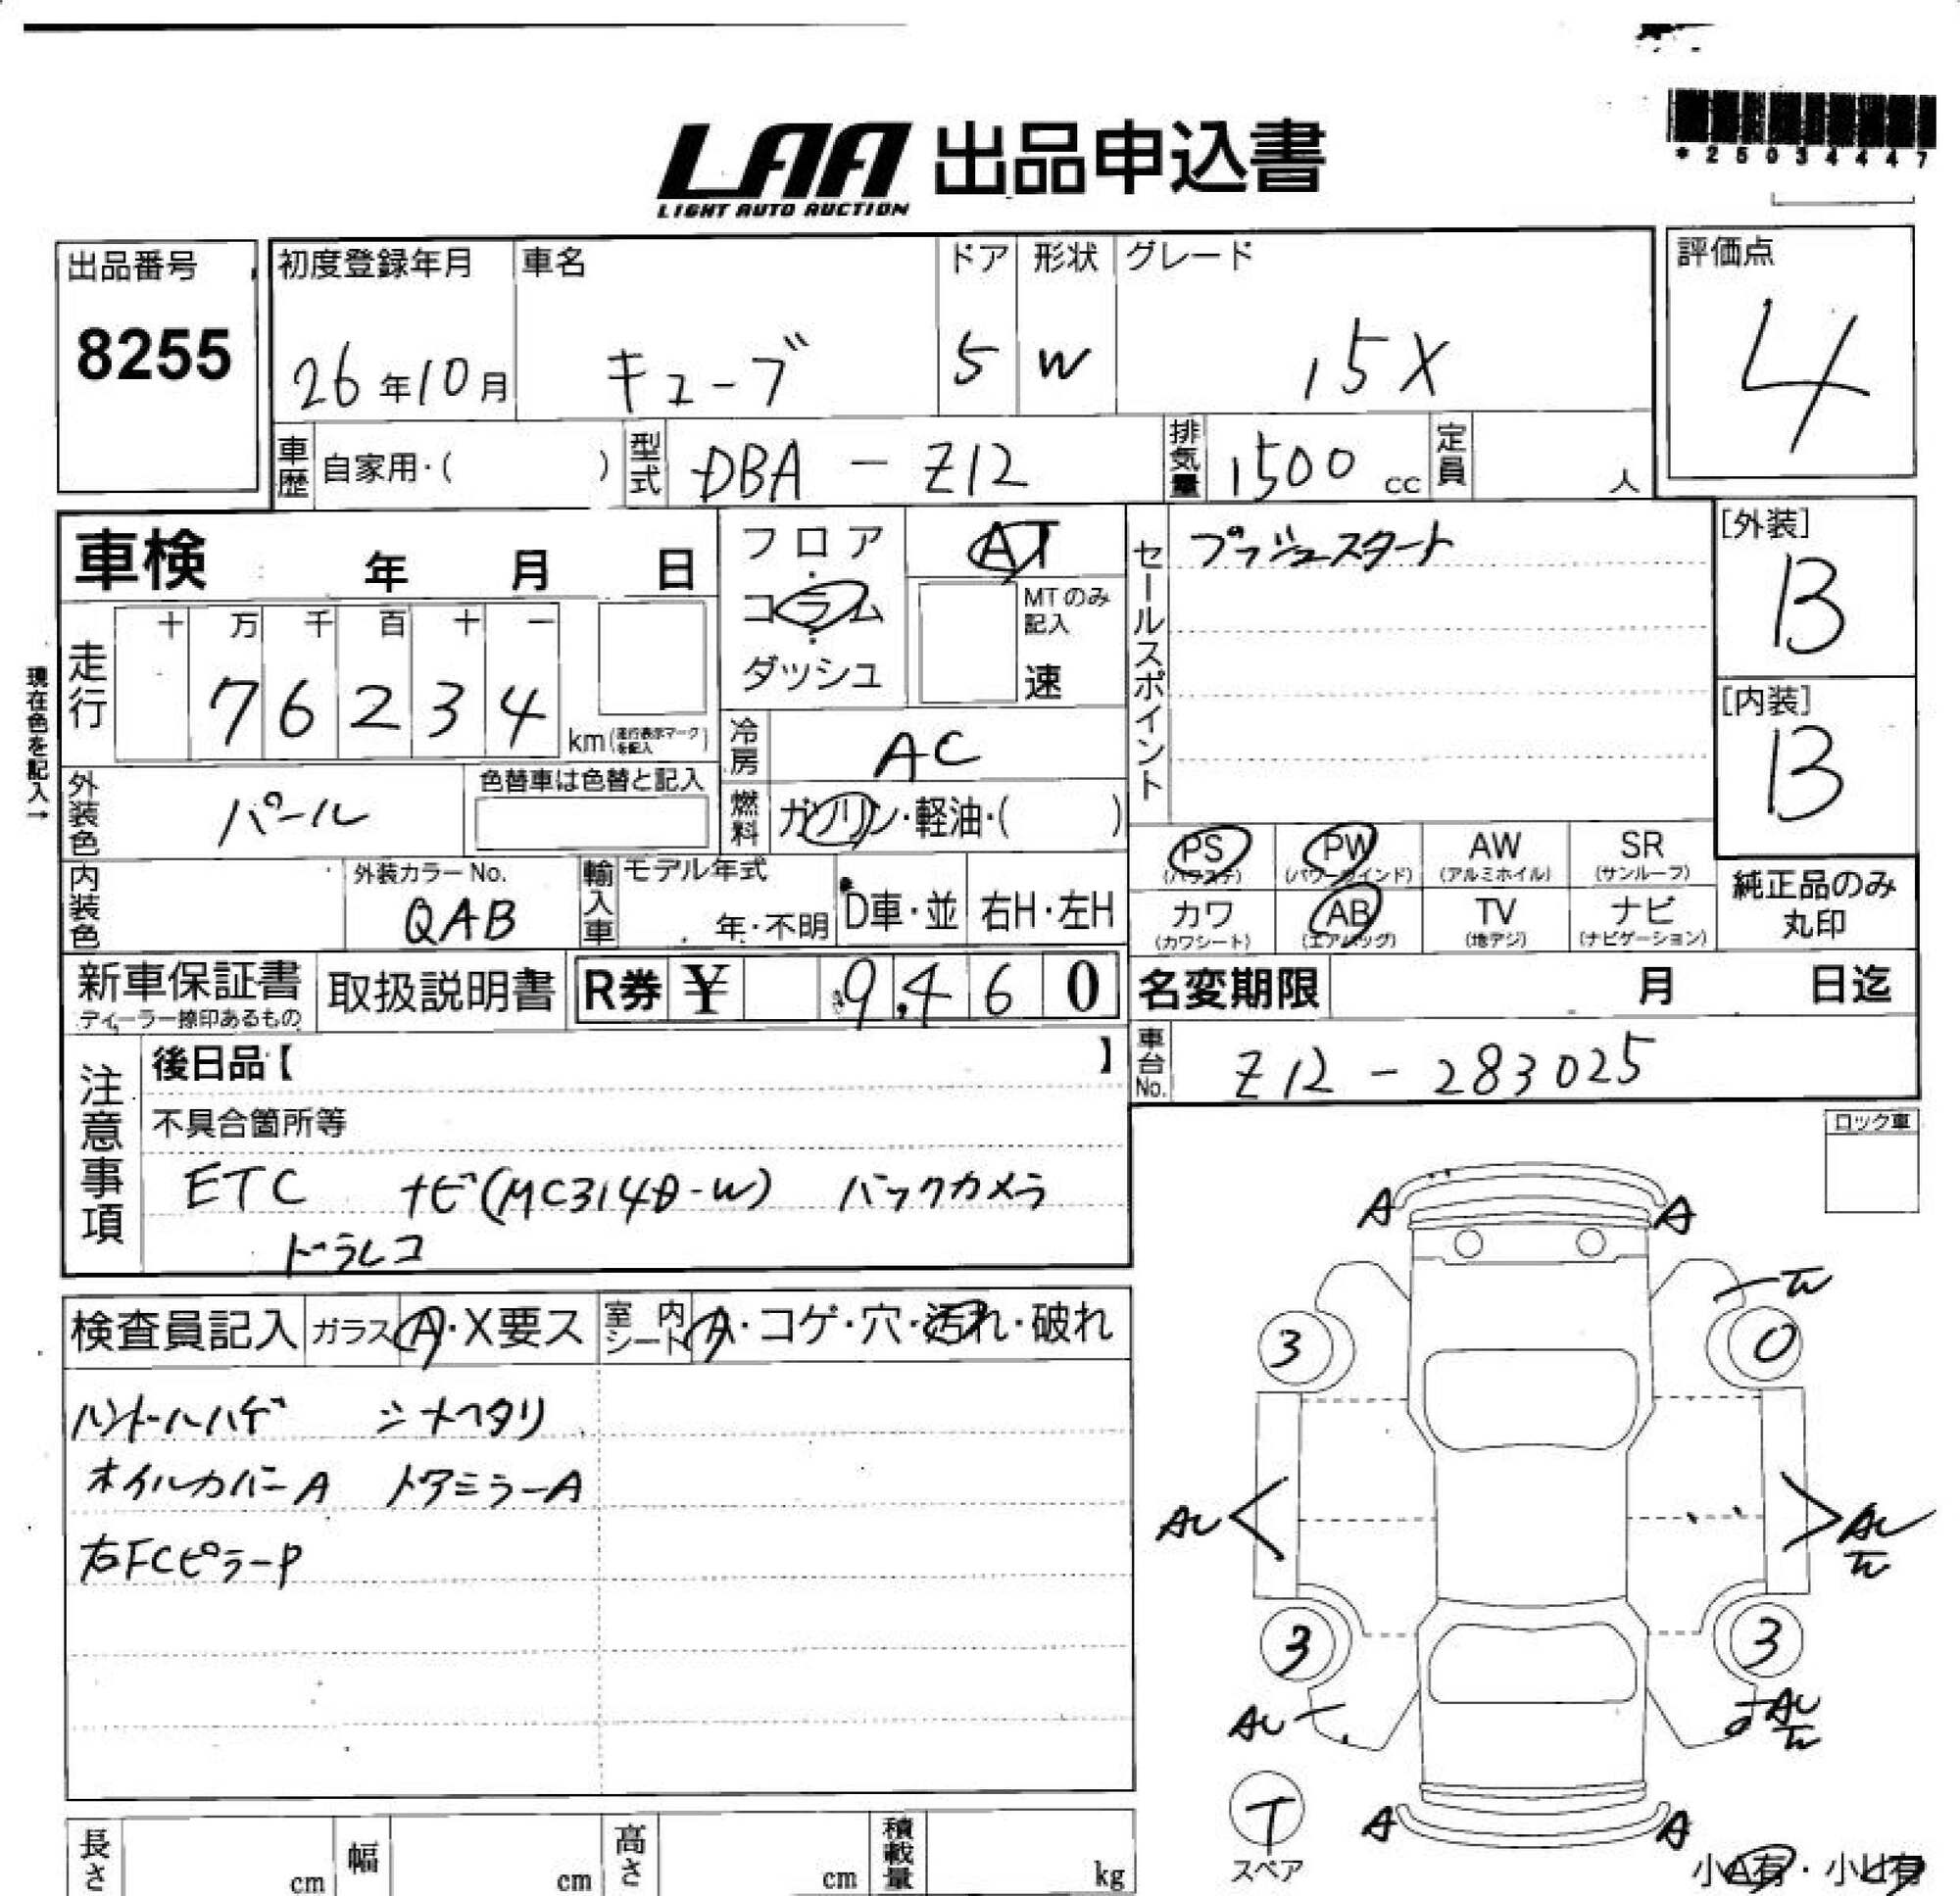 *25034447
LAA 出品申込書
LIGHT AUTO AUCTION
出品番号 初度登録年月 車名 ドア 形状 グレード 評価点
8255 26年10月 キューブ 5 W 15X 4
車歴 自家用・( ) 型式 DBA - Z12 排気量 1500 cc 定員 人
車検 年 月 日 フロア・コラム・ダッシュ AT MTのみ記入 速
セールスポイント プッシュスタート
[外装] B
[内装] B
現在色を記入→
走行 十 万 千 百 十 一
76234 km(走行表示マークを記入)
冷房 AC
外装色 パール 色替車は色替と記入
燃料 ガソリン・軽油・( )
PS (パワステ) PW (パワーウインド) AW (アルミホイル) SR (サンルーフ)
内装色 外装カラーNo. QAB 輸入車 モデル年式 年・不明 D車・並 右H・左H
カワ (カワシート) AB (エアバッグ) TV (地デジ) ナビ (ナビゲーション) 純正品のみ丸印
新車保証書 ディーラー捺印あるもの 取扱説明書 R券 ¥ 9,460 名変期限 月 日迄
車台No. Z12 - 283025
注意事項 後日品【 】
不具合箇所等
ETC ナビ(MC314D-W) バックカメラ
ドラレコ
ロック車
検査員記入 ガラス A・X要ス 室内シート A・コゲ・穴・汚れ・破れ
ハンドルハゲ シートヘタリ
ホイルカバーA ドアミラーA
右FCピラーP
A A
3 0
AU AU
3 3
AU AU
T
スペア
A A
小A有・小U有
長さ cm 幅 cm 高さ cm 積載量 kg